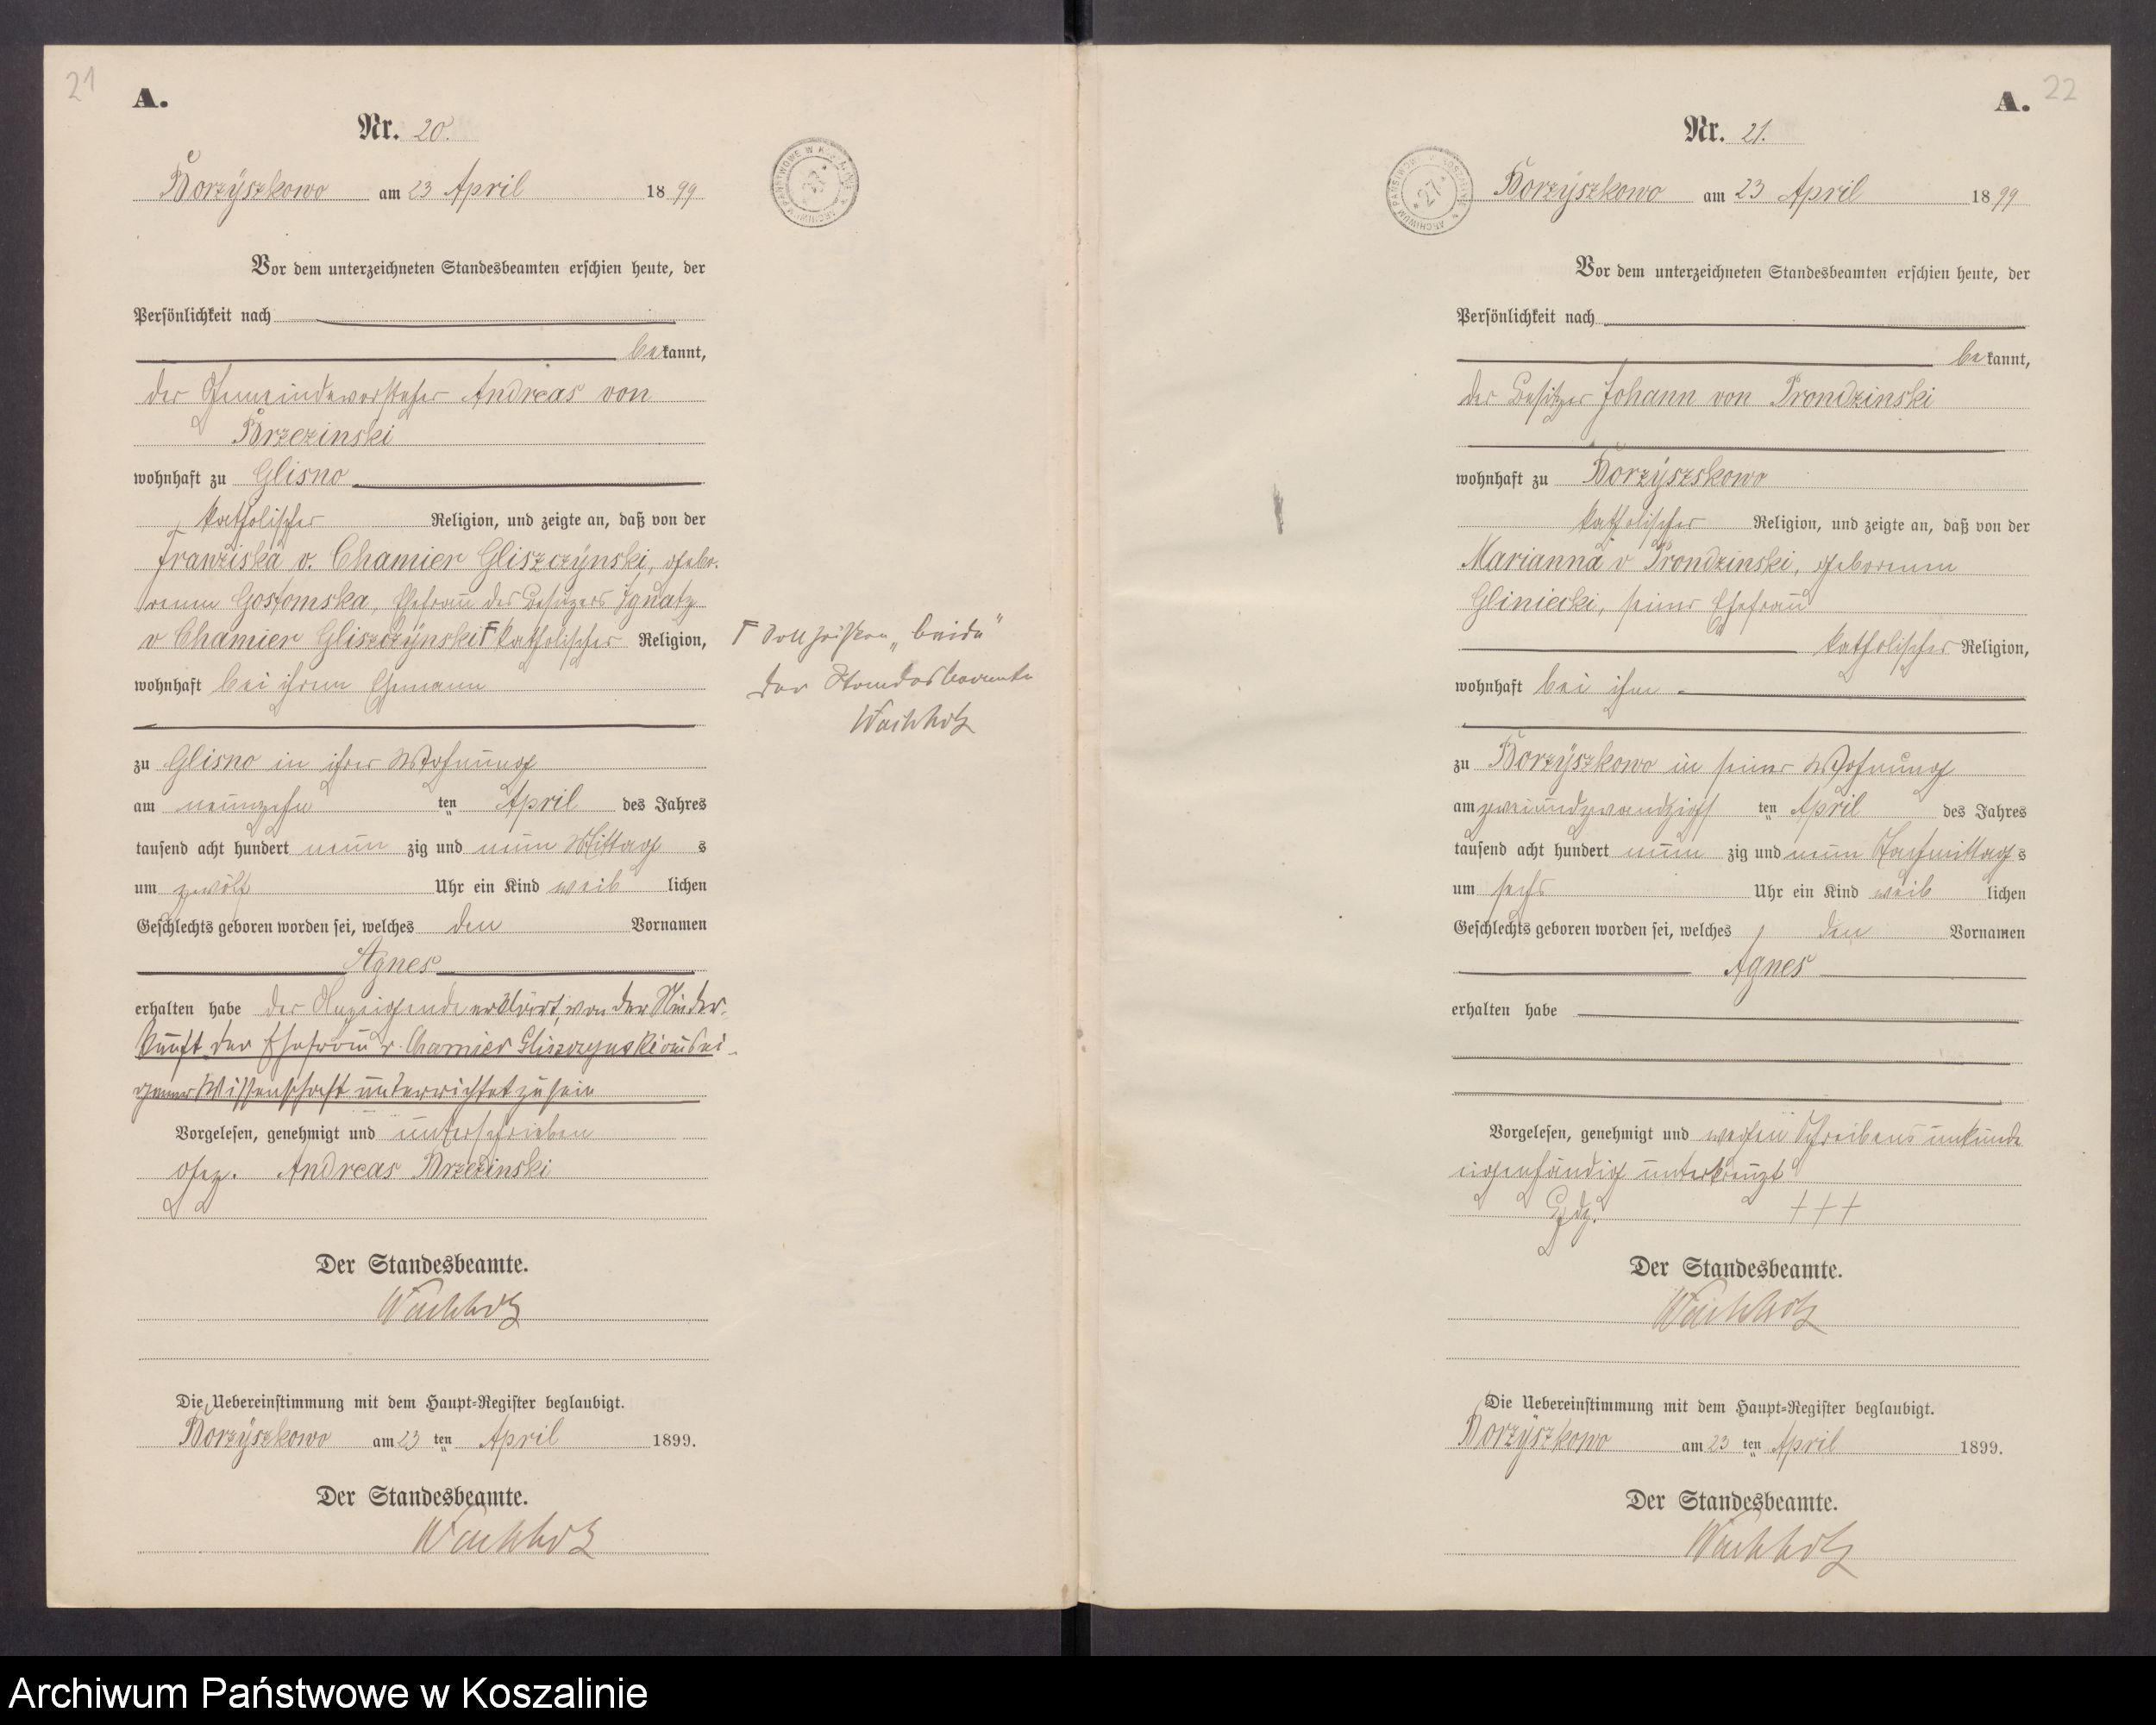 21
A.
Nr. 20.
Borzÿszkowo am 23 April 1899
ARCHIWUM PAŃSTWOWE W KOSZALINIE * 27 *
Vor dem unterzeichneten Standesbeamten erschien heute, der
Persönlichkeit nach
bekannt,
der Gemeindevorsteher Andreas von
Brzezinski
wohnhaft zu Glisno
katholischer Religion, und zeigte an, daß von der
Franziska v. Chamier Gliszczÿnski, gebo-
renen Gostomska, Ehefrau des Besitzers Ignatz
v Chamier Gliszczÿnski Γ katholischer Religion,
wohnhaft bei ihrem Ehemann
zu Glisno in ihrer Wohnung
am neunzehn ten April des Jahres
tausend acht hundert neun zig und neun Mittag s
um zwölf Uhr ein Kind weib lichen
Geschlechts geboren worden sei, welches den Vornamen
Agnes
erhalten habe der Anzeigende erklärt, von der Nieder-
kunft der Ehefrau v. Chamier Gliszczynski aus ei-
gener Wissenschaft unterrichtet zu sein
Vorgelesen, genehmigt und unterschrieben
gez. Andreas Brzezinski
Der Standesbeamte.
Wachholz
Die Uebereinstimmung mit dem Haupt-Register beglaubigt.
Borzÿszkowo am 23 ten April 1899.
Der Standesbeamte.
Wachholz
Γ soll heißen „beide"
Der Standesbeamte
Wachholz
22
A.
Nr. 21.
ARCHIWUM PAŃSTWOWE W KOSZALINIE * 27 *
Borzÿszkowo am 23 April 1899
Vor dem unterzeichneten Standesbeamten erschien heute, der
Persönlichkeit nach
bekannt,
der Besitzer Johann von Prondzinski
wohnhaft zu Borzÿszskowo
katholischer Religion, und zeigte an, daß von der
Marianna v Prondzinski, geborenen
Gliniecki, seiner Ehefrau
katholischer Religion,
wohnhaft bei ihm
zu Borzÿszkowo in seiner Wohnung
am zweiundzwandzigs ten April des Jahres
tausend acht hundert neun zig und neun Nachmittag s
um sechs Uhr ein Kind weib lichen
Geschlechts geboren worden sei, welches den Vornamen
Agnes
erhalten habe
Vorgelesen, genehmigt und wegen Schreibensunkunde
eigenhändig unterkreuzt
Hdz. +++
Der Standesbeamte.
Wachholz
Die Uebereinstimmung mit dem Haupt-Register beglaubigt.
Borzÿszkowo am 23 ten April 1899.
Der Standesbeamte.
Wachholz
Archiwum Państwowe w Koszalinie